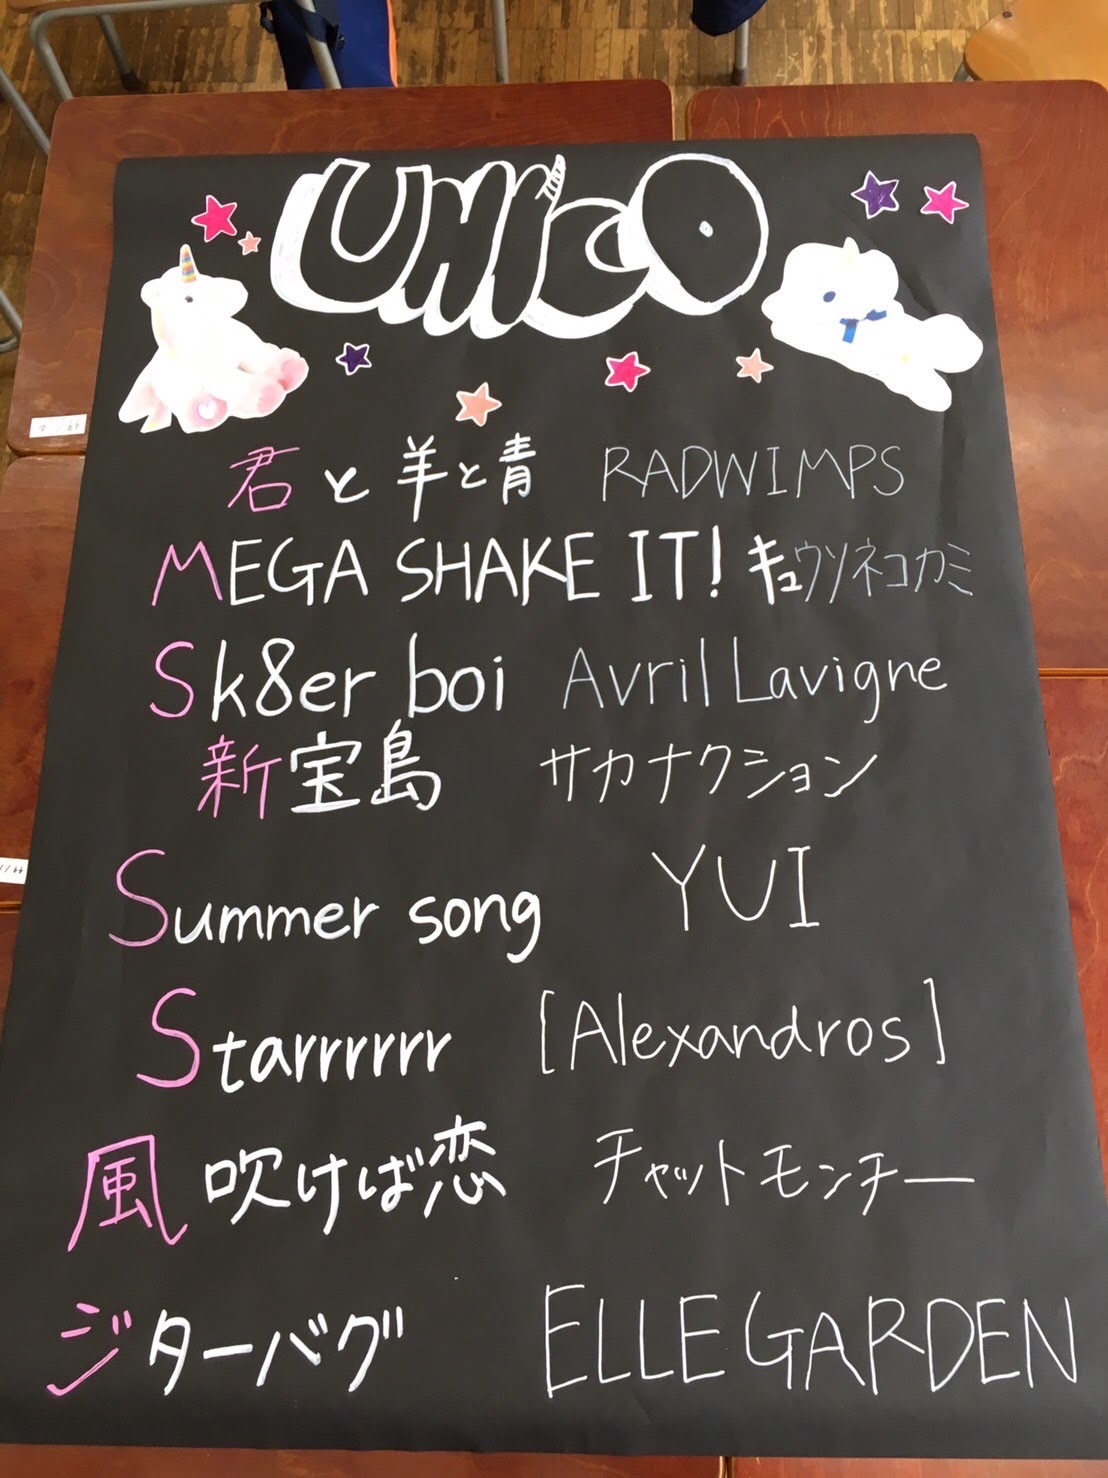 UNiCO
君と羊と青 RADWIMPS
MEGA SHAKE IT! キュウソネコカミ
Sk8er boi Avril Lavigne
新宝島 サカナクション
Summer song YUI
Starrrrrrr [Alexandros]
風吹けば恋 チャットモンチー
ジターバグ ELLEGARDEN